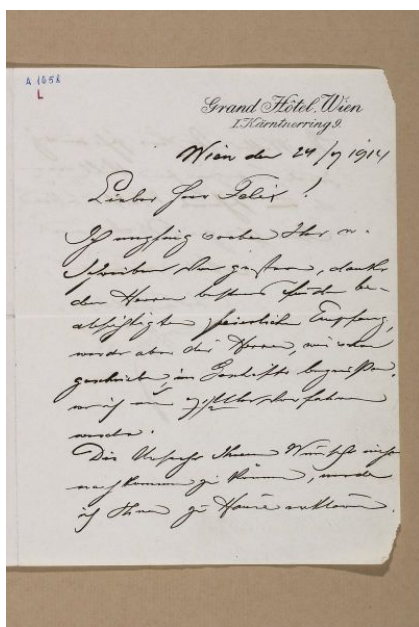 A 1051
L
Grand Hôtel. Wien
I. Kärntnerring 9.
Wien den 24/7 1914
Lieber Herr Felix!
Ich empfing soeben Ihr w.
Schreiben von gestern, danke
den Herren bestens für den be-
absichtigten feierlichen Empfang,
werde aber die Herren, wie schon
geschrieben, im Geschäfte begrüßen,
wo ich um Uhr vorfahren
werde.
Die Ursache Ihrem Wunsche nicht
nachkommen zu können, werde
ich Ihnen zu Hause erklären.